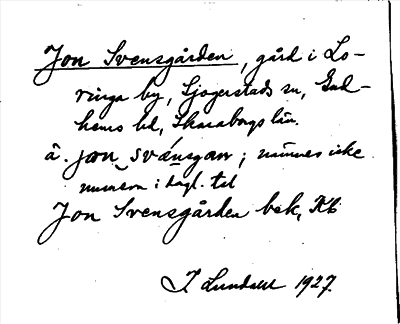 Jon Svensgården, gård i Lo-
ringa by, Sjogerstads sn, Gud-
hems hd, Skaraborgs län.
å. jon svänsgan; nämnes icke
numera i dagl. tal
Jon Svensgården bek, Kb
J. Lundahl 1927.